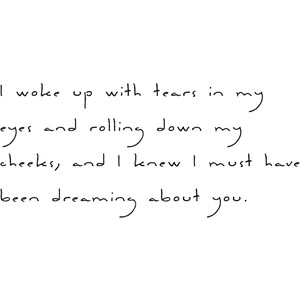 I woke up with tears in my
eyes and rolling down my
cheeks, and I knew I must have
been dreaming about you.